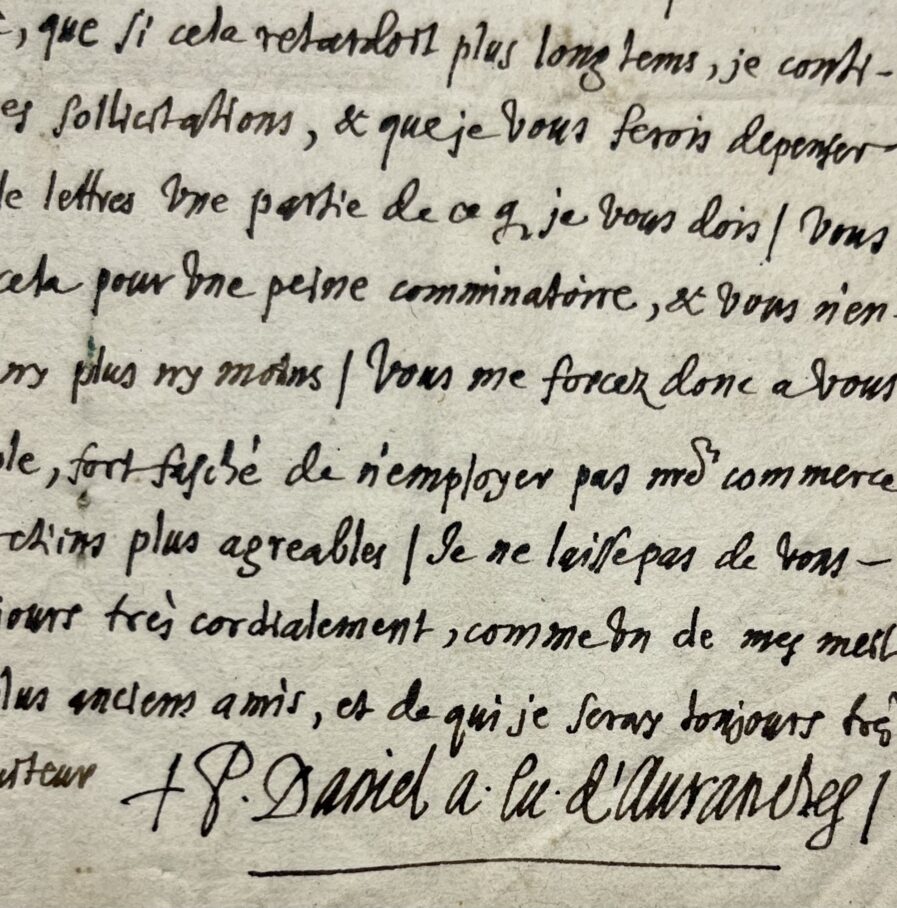 , que si cela retardoit plus long tems, je conti-
es sollicitations, & que je vous ferois depenser
de lettres une partie de ce q je vous dois / vous
cela pour une peine comminatoire, & vous n'en
ny plus ny moins / Vous me forcez donc a vous
ble, fort fasché de n'employer pas commerce
ctions plus agreables / Je ne laisse pas de vous –
jours très cordialement, comme un de mes meil
plus anciens amis, et de qui je seray toujours très
viteur + P. Daniel a. Eu. d'Auranches /